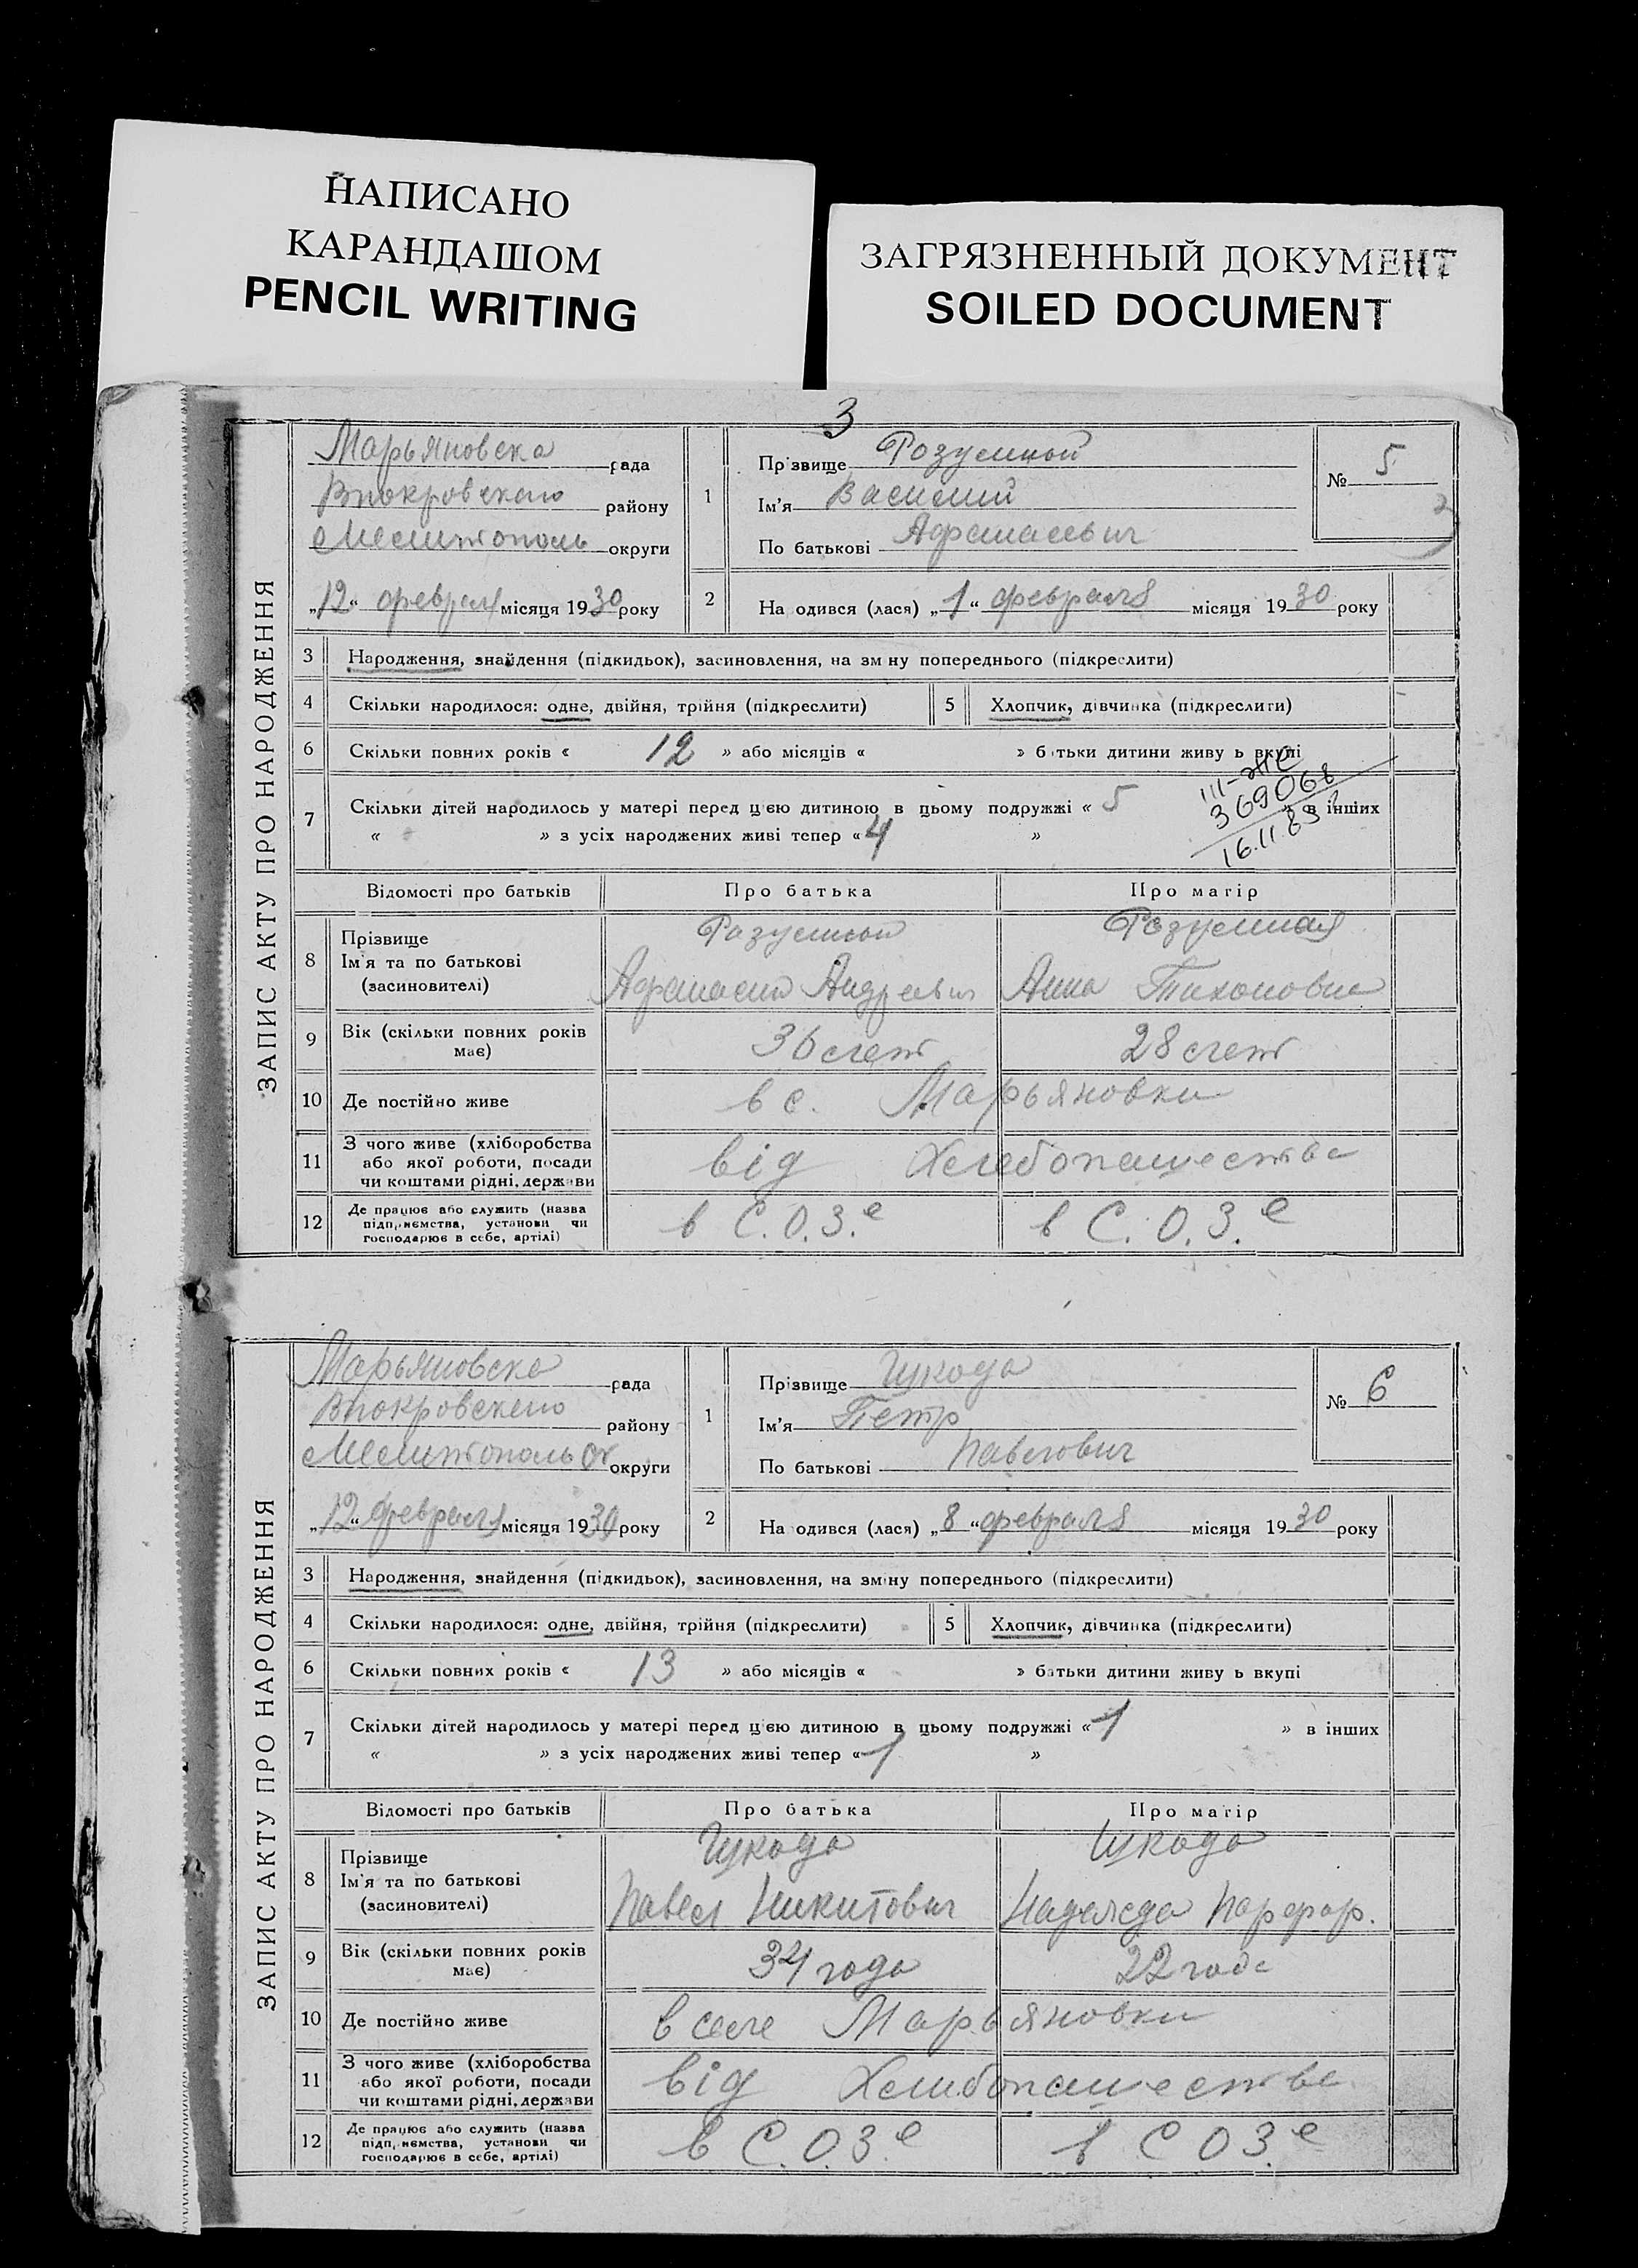 НАПИСАНО
КАРАНДАШОМ
PENCIL WRITING
ЗАГРЯЗНЕННЫЙ ДОКУМЕНТ
SOILED DOCUMENT
3
ЗАПИС АКТУ ПРО НАРОДЖЕННЯ
Марьяновска рада
Впокровского району
Мелитополь округи
„12“ февраля місяця 1930 року
1 Прізвище Розумной
Ім'я Василий
По батькові Афанасевич
№ 5
2 На одився (лася) „1“ февраля місяця 1930 року
3 Народження, знайдення (підкидьок), засиновлення, на зм ну попереднього (підкреслити)
4 Скільки народилося: одне, двійня, трійня (підкреслити) 5 Хлопчик, дівчинка (підкреслити)
6 Скільки повних років « 12 » або місяців « » батьки дитини живу ь вкупі
III-ЖС
369068
16.11.89
7 Скільки дітей народилось у матері перед цією дитиною в цьому подружжі « 5 » в інших
« » з усіх народжених живі тепер « 4 »
Відомості про батьків Про батька Про матір
8 Прізвище
Ім'я та по батькові
(засиновителі)
Розумной
Афанасий Андреевич
Розумная
Анна Тихоновна
9 Вік (скільки повних років має) 36 лет 28 лет
10 Де постійно живе в с. Марьяновки
11 З чого живе (хліборобства
або якої роботи, посади
чи коштами рідні, держави
від Хлебопашества
12 Де працює або служить (назва
підприємства, установи чи
господарює в себе, артілі)
в С.О.З.е в С.О.З.е
ЗАПИС АКТУ ПРО НАРОДЖЕННЯ
Марьяновска рада
Впокровского району
Мелитополь ок округи
„12“ февраля місяця 1930 року
1 Прізвище Шкода
Ім'я Петр
По батькові Павлович
№ 6
2 На одився (лася) „8“ февраля місяця 1930 року
3 Народження, знайдення (підкидьок), засиновлення, на зміну попереднього (підкреслити)
4 Скільки народилося: одне, двійня, трійня (підкреслити) 5 Хлопчик, дівчинка (підкреслити)
6 Скільки повних років « 13 » або місяців « » батьки дитини живу ь вкупі
7 Скільки дітей народилось у матері перед цією дитиною в цьому подружжі « 1 » в інших
« » з усіх народжених живі тепер « 1 »
Відомості про батьків Про батька Про матір
8 Прізвище
Ім'я та по батькові
(засиновителі)
Шкода
Павел Никитович
Шкода
Надежда Парфор.
9 Вік (скільки повних років має) 34 года 22 года
10 Де постійно живе в селе Марьяновки
11 З чого живе (хліборобства
або якої роботи, посади
чи коштами рідні, держави
від Хлебопашества
12 Де працює або служить (назва
підприємства, установи чи
господарює в себе, артілі)
в С.О.З.е в С О З.е